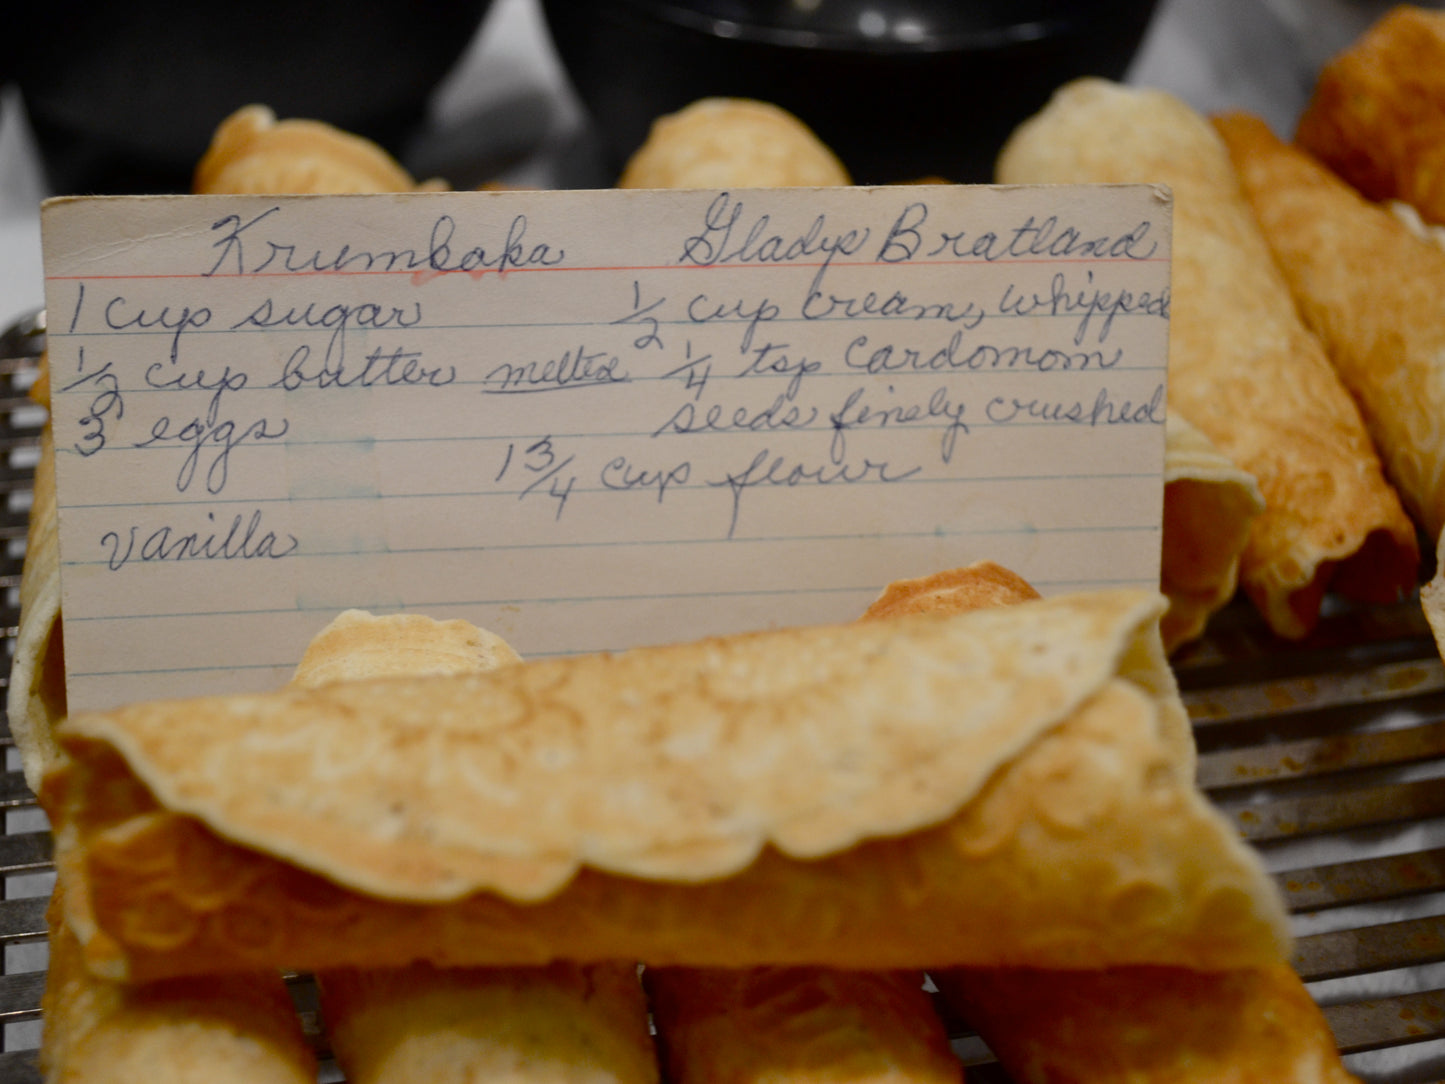 Krumkaka Gladys Bratland
1 cup sugar 1/2 cup cream, whipped
1/2 cup butter melted 1/4 tsp cardomom
3 eggs seeds finely crushed
1 3/4 cup flour
vanilla